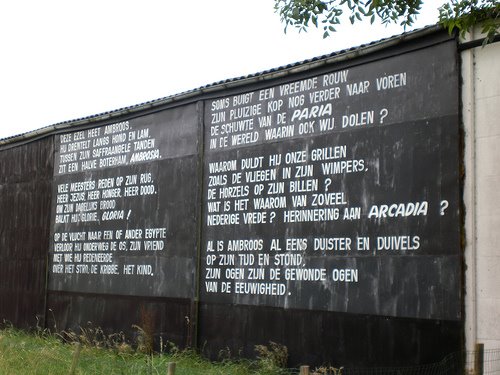 DEZE EZEL HEET AMBROOS
HIJ DRENTELT LANGS HOND EN LAM,
TUSSEN ZIJN SAFFRAANGELE TANDEN
ZIT EEN HALVE BOTERHAM, AMBROSIA.
VELE MEESTERS REDEN OP ZIJN RUG,
HEER JEZUS, HEER HONGER, HEER DOOD.
OM ZIJN DAGELIJKS BROOD
BALKT HIJ GLORIE, GLORIA!
OP DE VLUCHT NAAR EEN OF ANDER EGYPTE
VERLOOR HIJ ONDERWEG DE OS, ZIJN VRIEND
MET WIE HIJ REDENEERDE
OVER HET STRO, DE KRIBBE, HET KIND.
SOMS BUIGT EEN VREEMDE ROUW
ZIJN PLUIZIGE KOP NOG VERDER NAAR VOREN
DE SCHUWTE VAN DE PARIA
IN DE WERELD WAARIN OOK WIJ DOLEN?
WAAROM DULDT HIJ ONZE GRILLEN
ZOALS DE VLIEGEN IN ZIJN WIMPERS,
DE HORZELS OP ZIJN BILLEN?
WAT IS HET WAAROM VAN ZOVEEL
NEDERIGE VREDE? HERINNERING AAN ARCADIA?
AL IS AMBROOS AL EENS DUISTER EN DUIVELS
OP ZIJN TIJD EN STOND,
ZIJN OGEN ZIJN DE GEWONDE OGEN
VAN DE EEUWIGHEID.